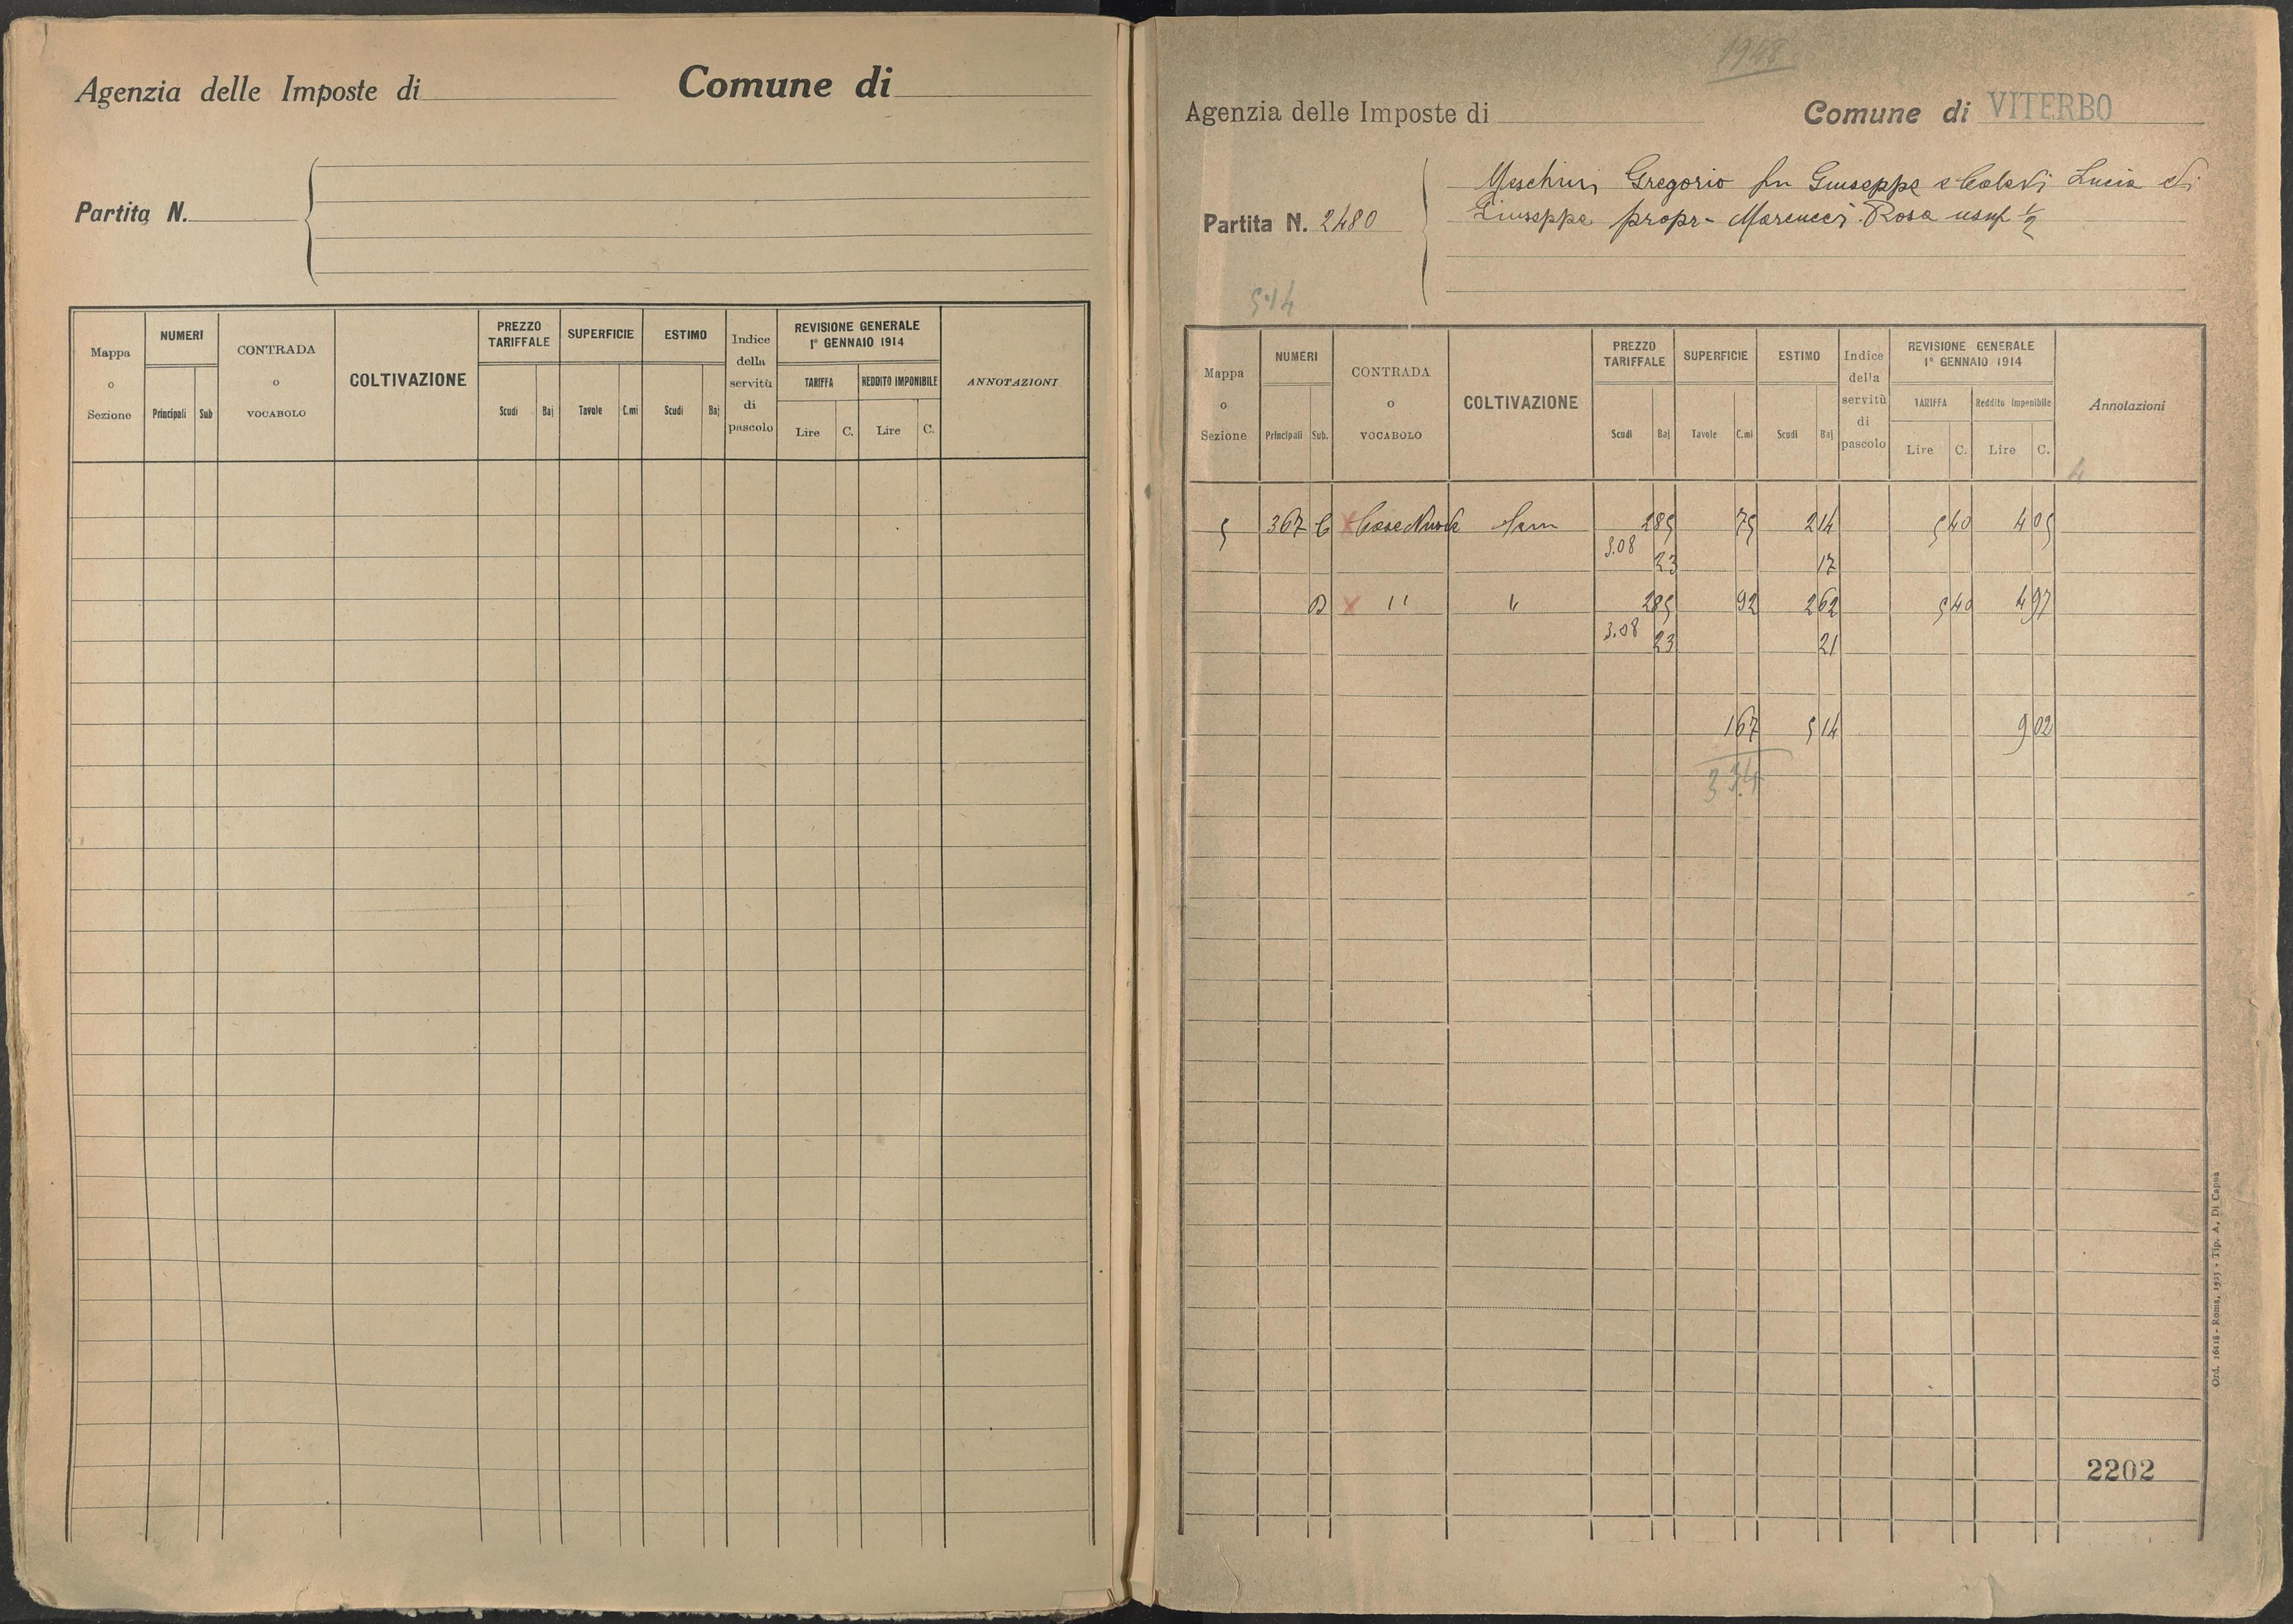 Agenzia delle Imposte di Comune di
Partita N.
Mappa o Sezione NUMERI Principali Sub CONTRADA o VOCABOLO COLTIVAZIONE PREZZO TARIFFALE Scudi Baj SUPERFICIE Tavole C.mi ESTIMO Scudi Baj Indice della servitù di pascolo REVISIONE GENERALE 1° GENNAIO 1914 TARIFFA Lire C. REDDITO IMPONIBILE Lire C. ANNOTAZIONI
1948
Agenzia delle Imposte di Comune di VITERBO
Meschini Gregorio fu Giuseppe e Lucia di
Partita N. 2480 Giuseppe propr- Marcucci Rosa usuf 1/2
514
Mappa o Sezione NUMERI Principali Sub. CONTRADA o VOCABOLO COLTIVAZIONE PREZZO TARIFFALE Scudi Baj SUPERFICIE Tavole C.mi ESTIMO Scudi Baj Indice della servitù di pascolo REVISIONE GENERALE 1° GENNAIO 1914 TARIFFA Lire C. Reddito Imponibile Lire C. Annotazioni
4
5 367 C x Case Nuove 285 75 214 5 40 4 05
3.08 23 17
D x " " 285 92 262 5 40 4 97
3.08 23 21
1 67 5 14 9 02
3 34
2202
Ord. 16118 - Roma, 1925 - Tip. A. Di Capua